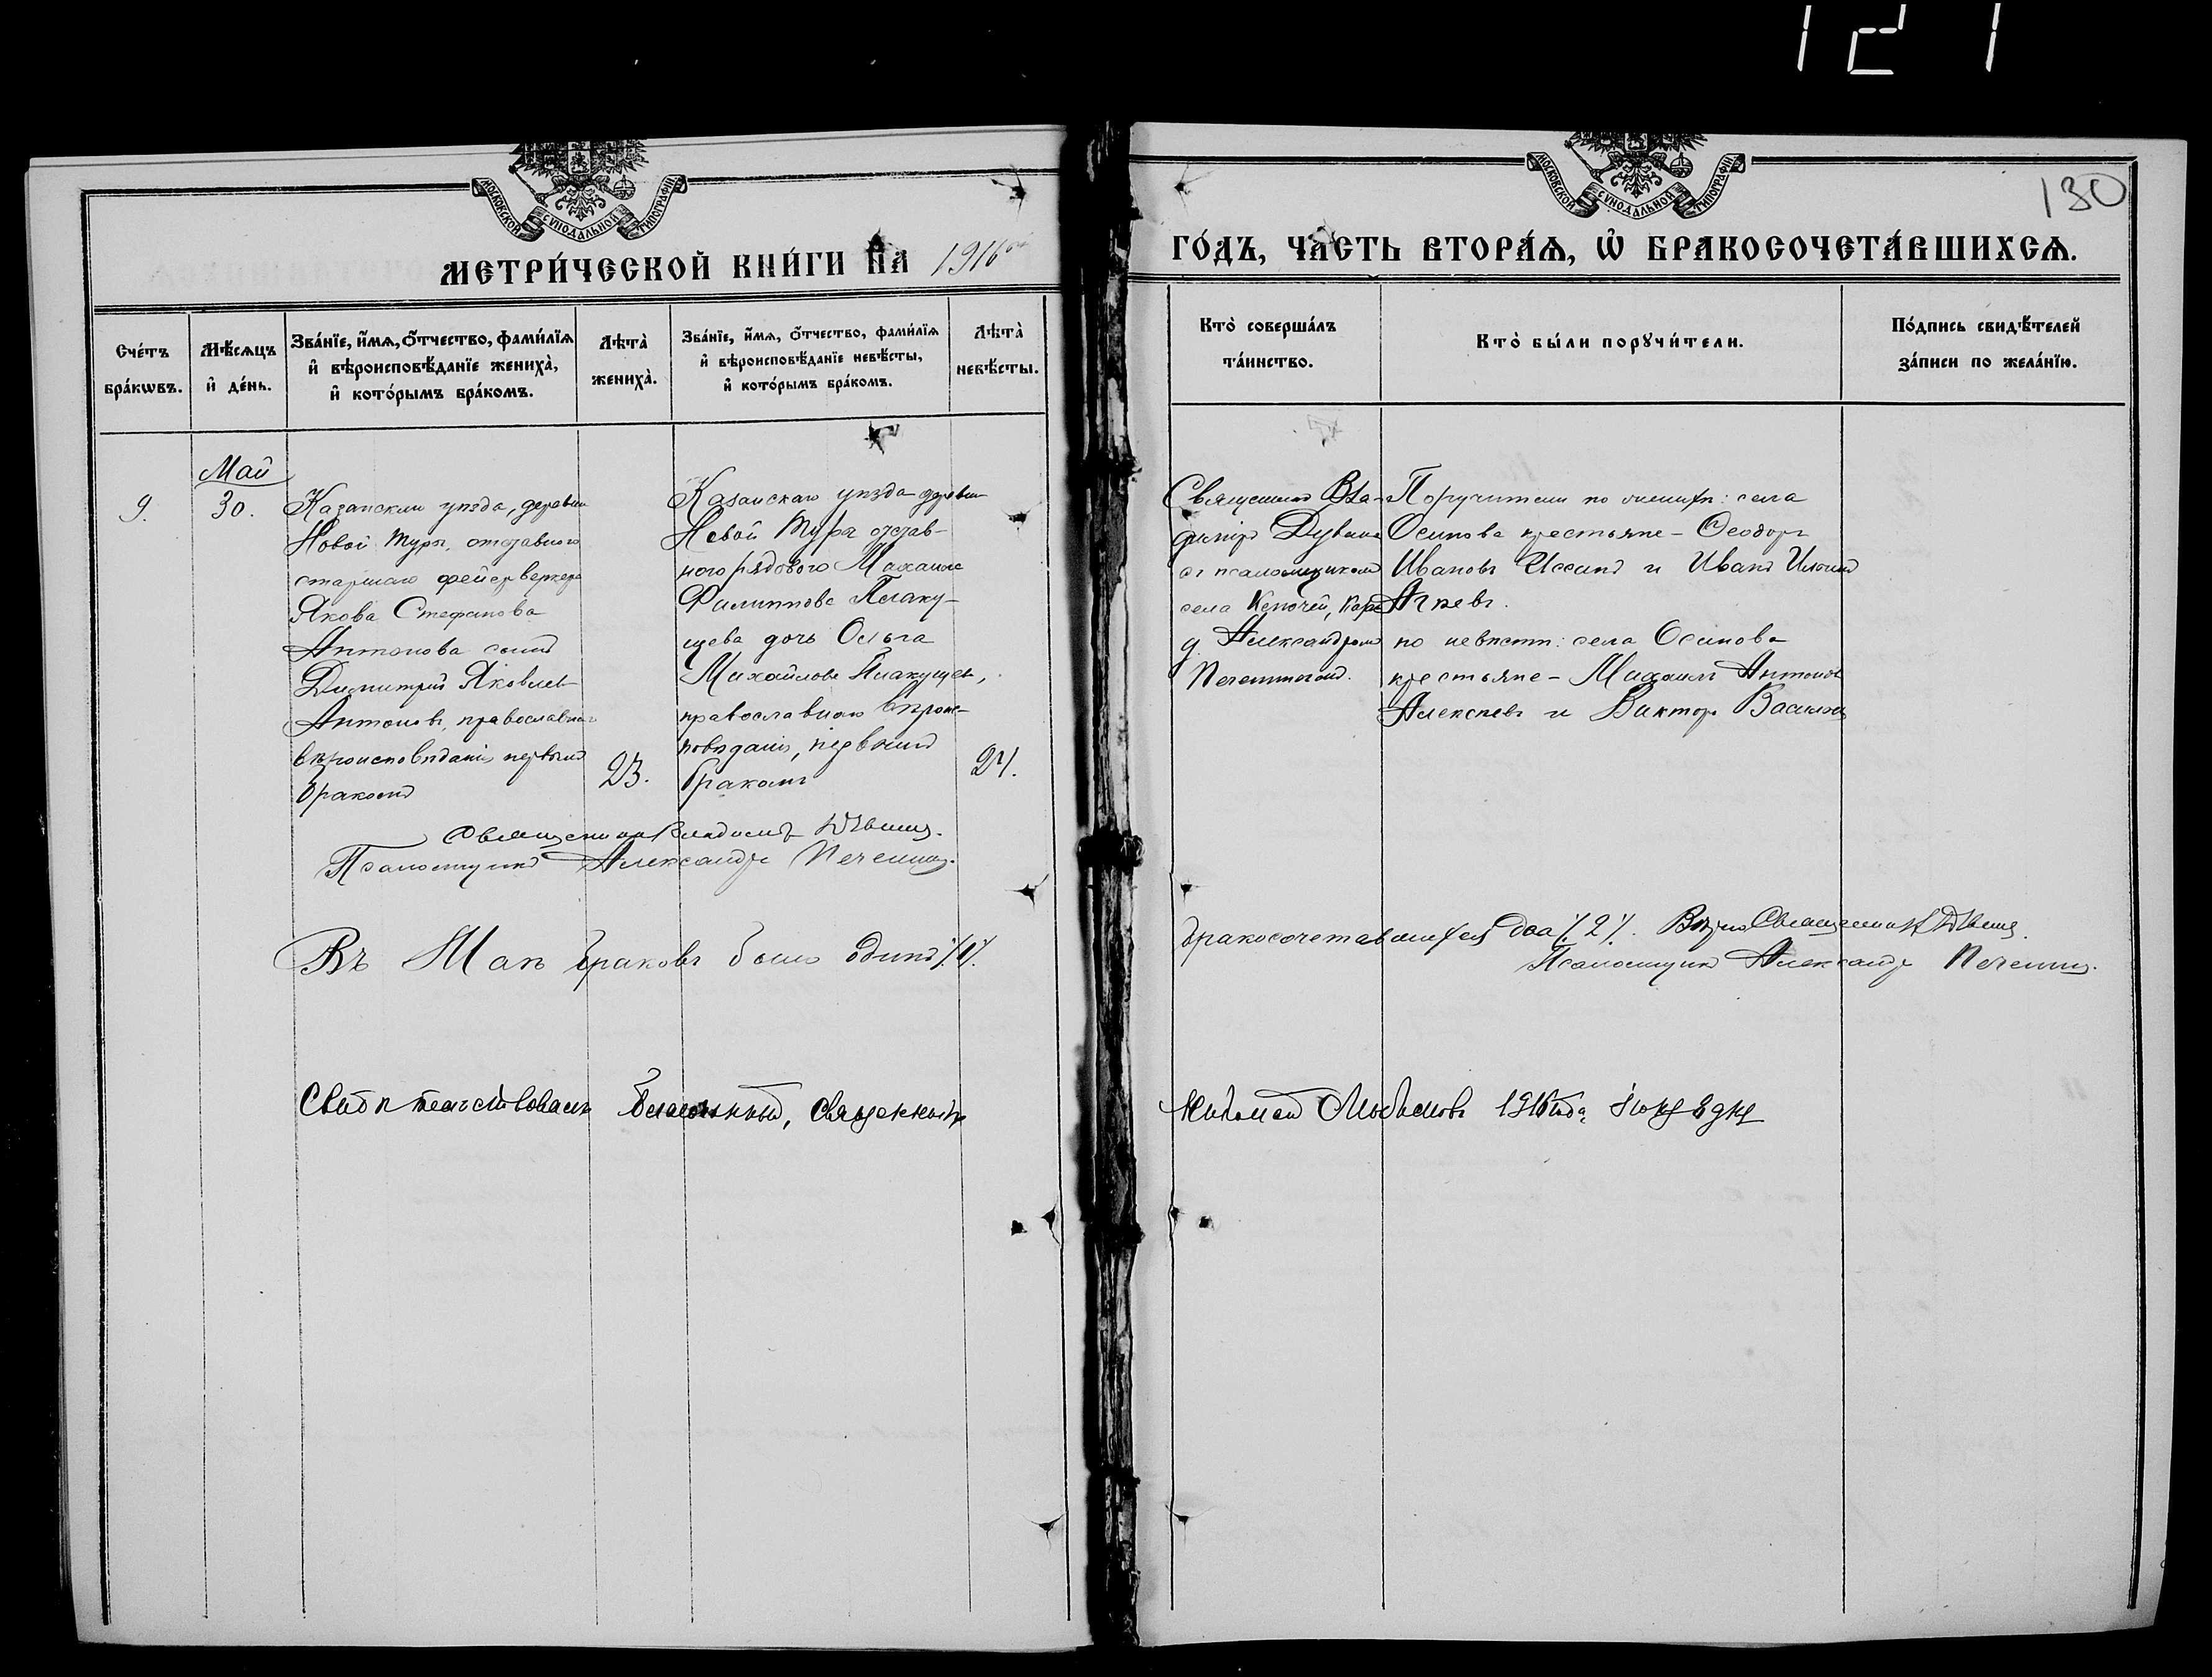 121
130
МОСКОВСКОЙ СУНОДАЛЬНОЙ ТИПОГРАФІИ
МОСКОВСКОЙ СУНОДАЛЬНОЙ ТИПОГРАФІИ
МЕТРИ́ЧЕСКОЙ КНИ́ГИ НА 1916
ГО́ДЪ, ЧА́СТЬ ВТОРА́Ѧ, Ѽ БРАКОСОЧЕТА́ВШИХСѦ.
Сче́тъ бра́кѡвъ.
Мѣ́сѧцъ и҆ де́нь.
Зва́нїе, и҆́мѧ, ѻ҆́тчество, фами́лїѧ и҆ вѣроисповѣ́данїе жениха̀, и҆ кото́рымъ бра́комъ.
Лѣ́та̀ жениха̀.
Зва́нїе, и҆́мѧ, ѻ҆́тчество, фами́лїѧ и҆ вѣроисповѣ́данїе невѣ́сты, и҆ кото́рымъ бра́комъ.
Лѣ́та̀ невѣ́сты.
Кто̀ соверша́лъ та́инство.
Кто̀ бы́ли порꙋчи́тели.
По́дпись свидѣ́телей за́писи по жела́нїю.
9.
Май
30.
Казанскаго уѣзда, деревни
Новой Туры, отставного
старшаго фейерверкера
Якова Стефанова
Антонова сынъ
Димитрій Яковлевъ
Антоновъ, православнаго
вѣроисповѣданія первымъ
бракомъ
23.
Казанскаго уѣзда деревни
Новой Туры отстав-
ного рядового Михаила
Филиппова Плаку-
щева дочь Ольга
Михайлова Плакущева,
православнаго вѣроис-
повѣданія, первымъ
бракомъ
24.
Священникъ Вла-
диміръ
съ псаломщикомъ
села
Александромъ
Поручители по женихѣ: села
Осинова крестьяне – Ѳеодоръ
Ивановъ и Иванъ Ильинъ
по невѣстѣ: села Осинова
крестьяне – Михаилъ Антоновъ
Алексѣевъ и Викторъ Васильевъ
Священникъ Владиміръ
Псаломщикъ Александръ
Въ Маѣ браковъ было одинъ /1/.
бракосочетавшихся два /2/. Священникъ
Псаломщикъ Александръ
Свидѣтельствовалъ Благочинный, Священникъ
Любимовъ 1916 года